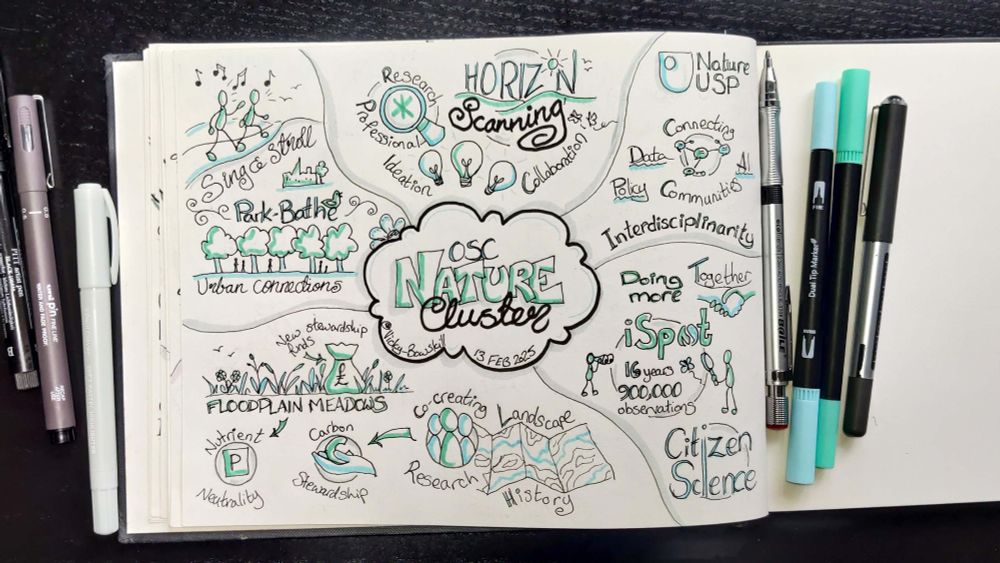 OSC
NATURE
Cluster
@Vicky-Bowskill
13 FEB 2025
Research
Professional
HORIZON
Scanning
Ideation
Collaboration
Nature
USP
Connecting
Data
Policy
Communities
Interdisciplinarity
Doing Together
more
iSpot
16 years
900,000
observations
Citizen
Science
Landscape
History
Co-creating
Research
New stewardship
funds
£
FLOODPLAIN MEADOWS
Nutrient
P
Neutrality
Carbon
C
Stewardship
Sing & Stroll
Park-Bathe
Urban connections
uni pin FINE LINE
WATER AND FADE PROOF
Dual Tip Marker